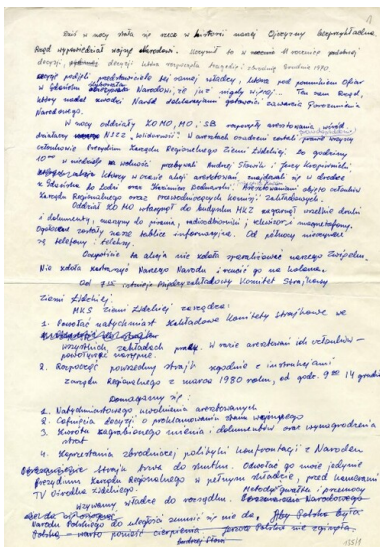 Dziś w nocy stała się rzecz w historii naszej Ojczyzny bezprzykładna.
Rząd wypowiedział wojnę Narodowi. Uczynił to w 11 rocznicę podobnej
decyzji, która rozpoczęła tragedię i zbrodnię Grudnia 1970
podjęli przedstawiciele tej samej władzy, która pod pomnikiem Ofiar
w Gdańsku Narodowi, że już nigdy więcej... Ten sam Rząd,
który nadal zwodzi Naród deklaracjami gotowości zawarcia Porozumienia
Narodowego.
W nocy oddziały ZOMO, MO, SB rozpoczęły aresztowania wśród
działaczy NSZZ „Solidarność". W areszcie osadzeni zostali prawie wszyscy
członkowie Prezydium Zarządu Regionalnego Ziemi Łódzkiej. Do godziny
10⁰⁰ w niedzielę na wolności przebywali Andrzej Słowik i Jerzy Kropiwnicki
którzy w czasie akcji aresztowań znajdowali się w drodze
z Gdańska do Łodzi oraz Kazimierz Bednarski. Aresztowaniami objęto członków
Zarządu Regionalnego oraz przewodniczących Komisji Zakładowych.
Oddział ZOMO wtargnął do budynku MKZ zagarnął wszelkie druki
i dokumenty, maszyny do pisania, radioodbiorniki, telewizor i magnetofony.
zostały nasze tablice informacyjne. Od północy nieczynne
są telefony i teleksy.
Oczywiście ta akcja nie zdoła sparaliżować naszego Związku.
Nie zdoła zastraszyć Naszego Narodu i rzucić go na kolana.
Od 7¹⁵ istnieje Międzyzakładowy Komitet Strajkowy
Ziemi Łódzkiej.
MKS Ziemi Łódzkiej zarządza:
1. Powołać natychmiast Zakładowe Komitety Strajkowe we
wszystkich zakładach pracy. W razie aresztowań ich członków –
powoływać następne.
2. Rozpocząć powszechny strajk zgodnie z instrukcjami
Zarządu Regionalnego z marca 1980 roku, od godz. 9⁰⁰ 14 grudnia
Domagamy się:
1. Natychmiastowego uwolnienia aresztowanych
2. Cofnięcia decyzji o proklamowaniu stanu wojennego
3. Zwrotu zagrabionego mienia i dokumentów oraz wynagrodzenia
strat
4. Zaprzestania zbrodniczej polityki konfrontacji z Narodem
Strajk trwa do skutku. Odwołać go może jedynie
Prezydium Zarządu Regionalnego w pełnym składzie, przed kamerami
TV Ośrodka Łódzkiego.
Wzywamy władze do rozsądku. Metodą gwałtu i przemocy
Narodu Polskiego do uległości zmusić się nie da.
Andrzej Słowik
135/1